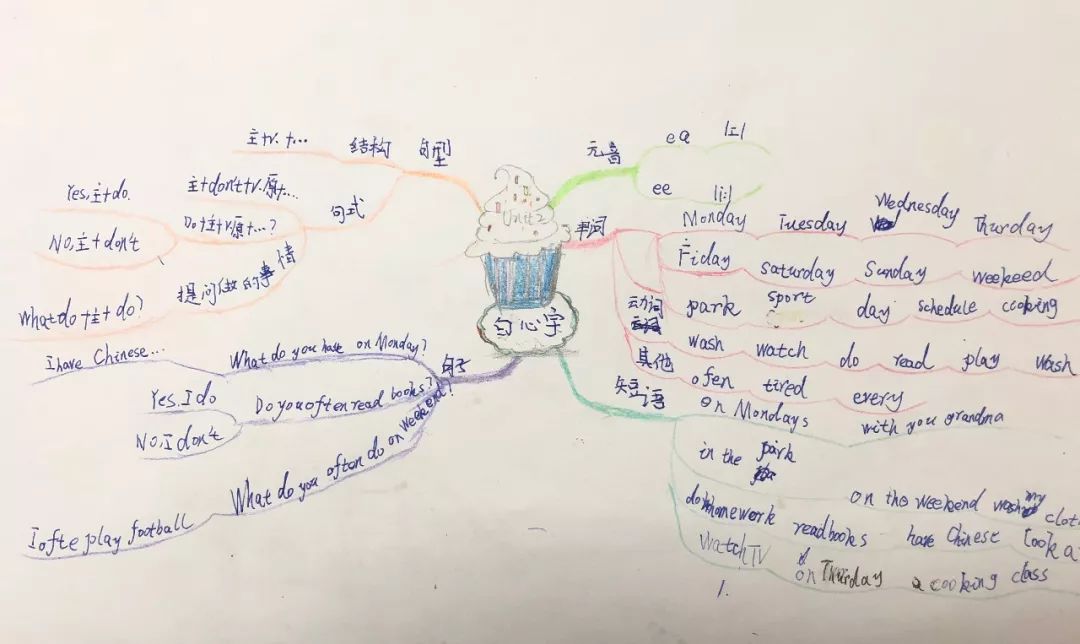 Unit 2
白心宇
元音
ea /i:/
ee /i:/
单词
Monday Tuesday Wednesday Thurday
Fiday saturday Sunday weekeed
park sport day schedule cooking
动词
wash watch do read play wash
其他
ofen tired every
短语
on Mondays with you grandma
in the park
on the weekend wash my cloth
do homework read books have Chinese
Watch TV on Thurday a cooking class
句型
结构
主+v.+...
句式
主+don't+v.原+...
Do+主+v.原+...?
Yes,主+do.
No,主+don't
提问做的事情
What do+主+do?
句子
What do you have on Monday?
I have Chinese...
Do you often read books?
Yes.I do
No,I don't
What do you often do on weekend?
I ofte play football